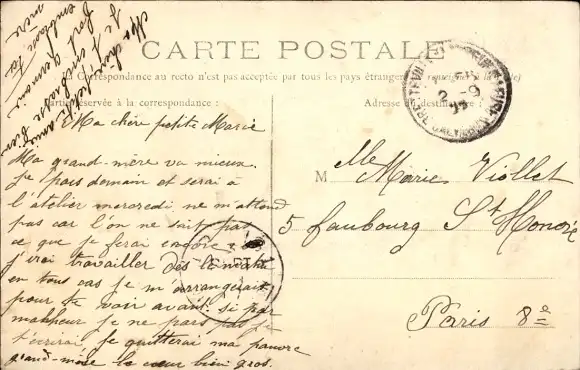 CARTE POSTALE
La Correspondance au recto n'est pas acceptée par tous les pays étrangers (se renseigner à la Poste)
Partie réservée à la correspondance :
Adresse du destinataire :
Ma chère petite Marie
Ma grand-mère va mieux.
Je pars demain et serai à
l'atelier mercredi ne m'attend
pas car l'on ne sait pas
ce que je ferai encore
j'irai travailler dès le
en tous cas je m'arrangerai
pour te voir avant. si par
malheur je ne pars pas je
t'écrirai, je quitterai ma pauvre
grand-mère le cœur bien gros.
M lle Marie Viollet
5 faubourg St Honoré
Paris 8e
Ma chère petite amie
Je
embrasse ta
mère